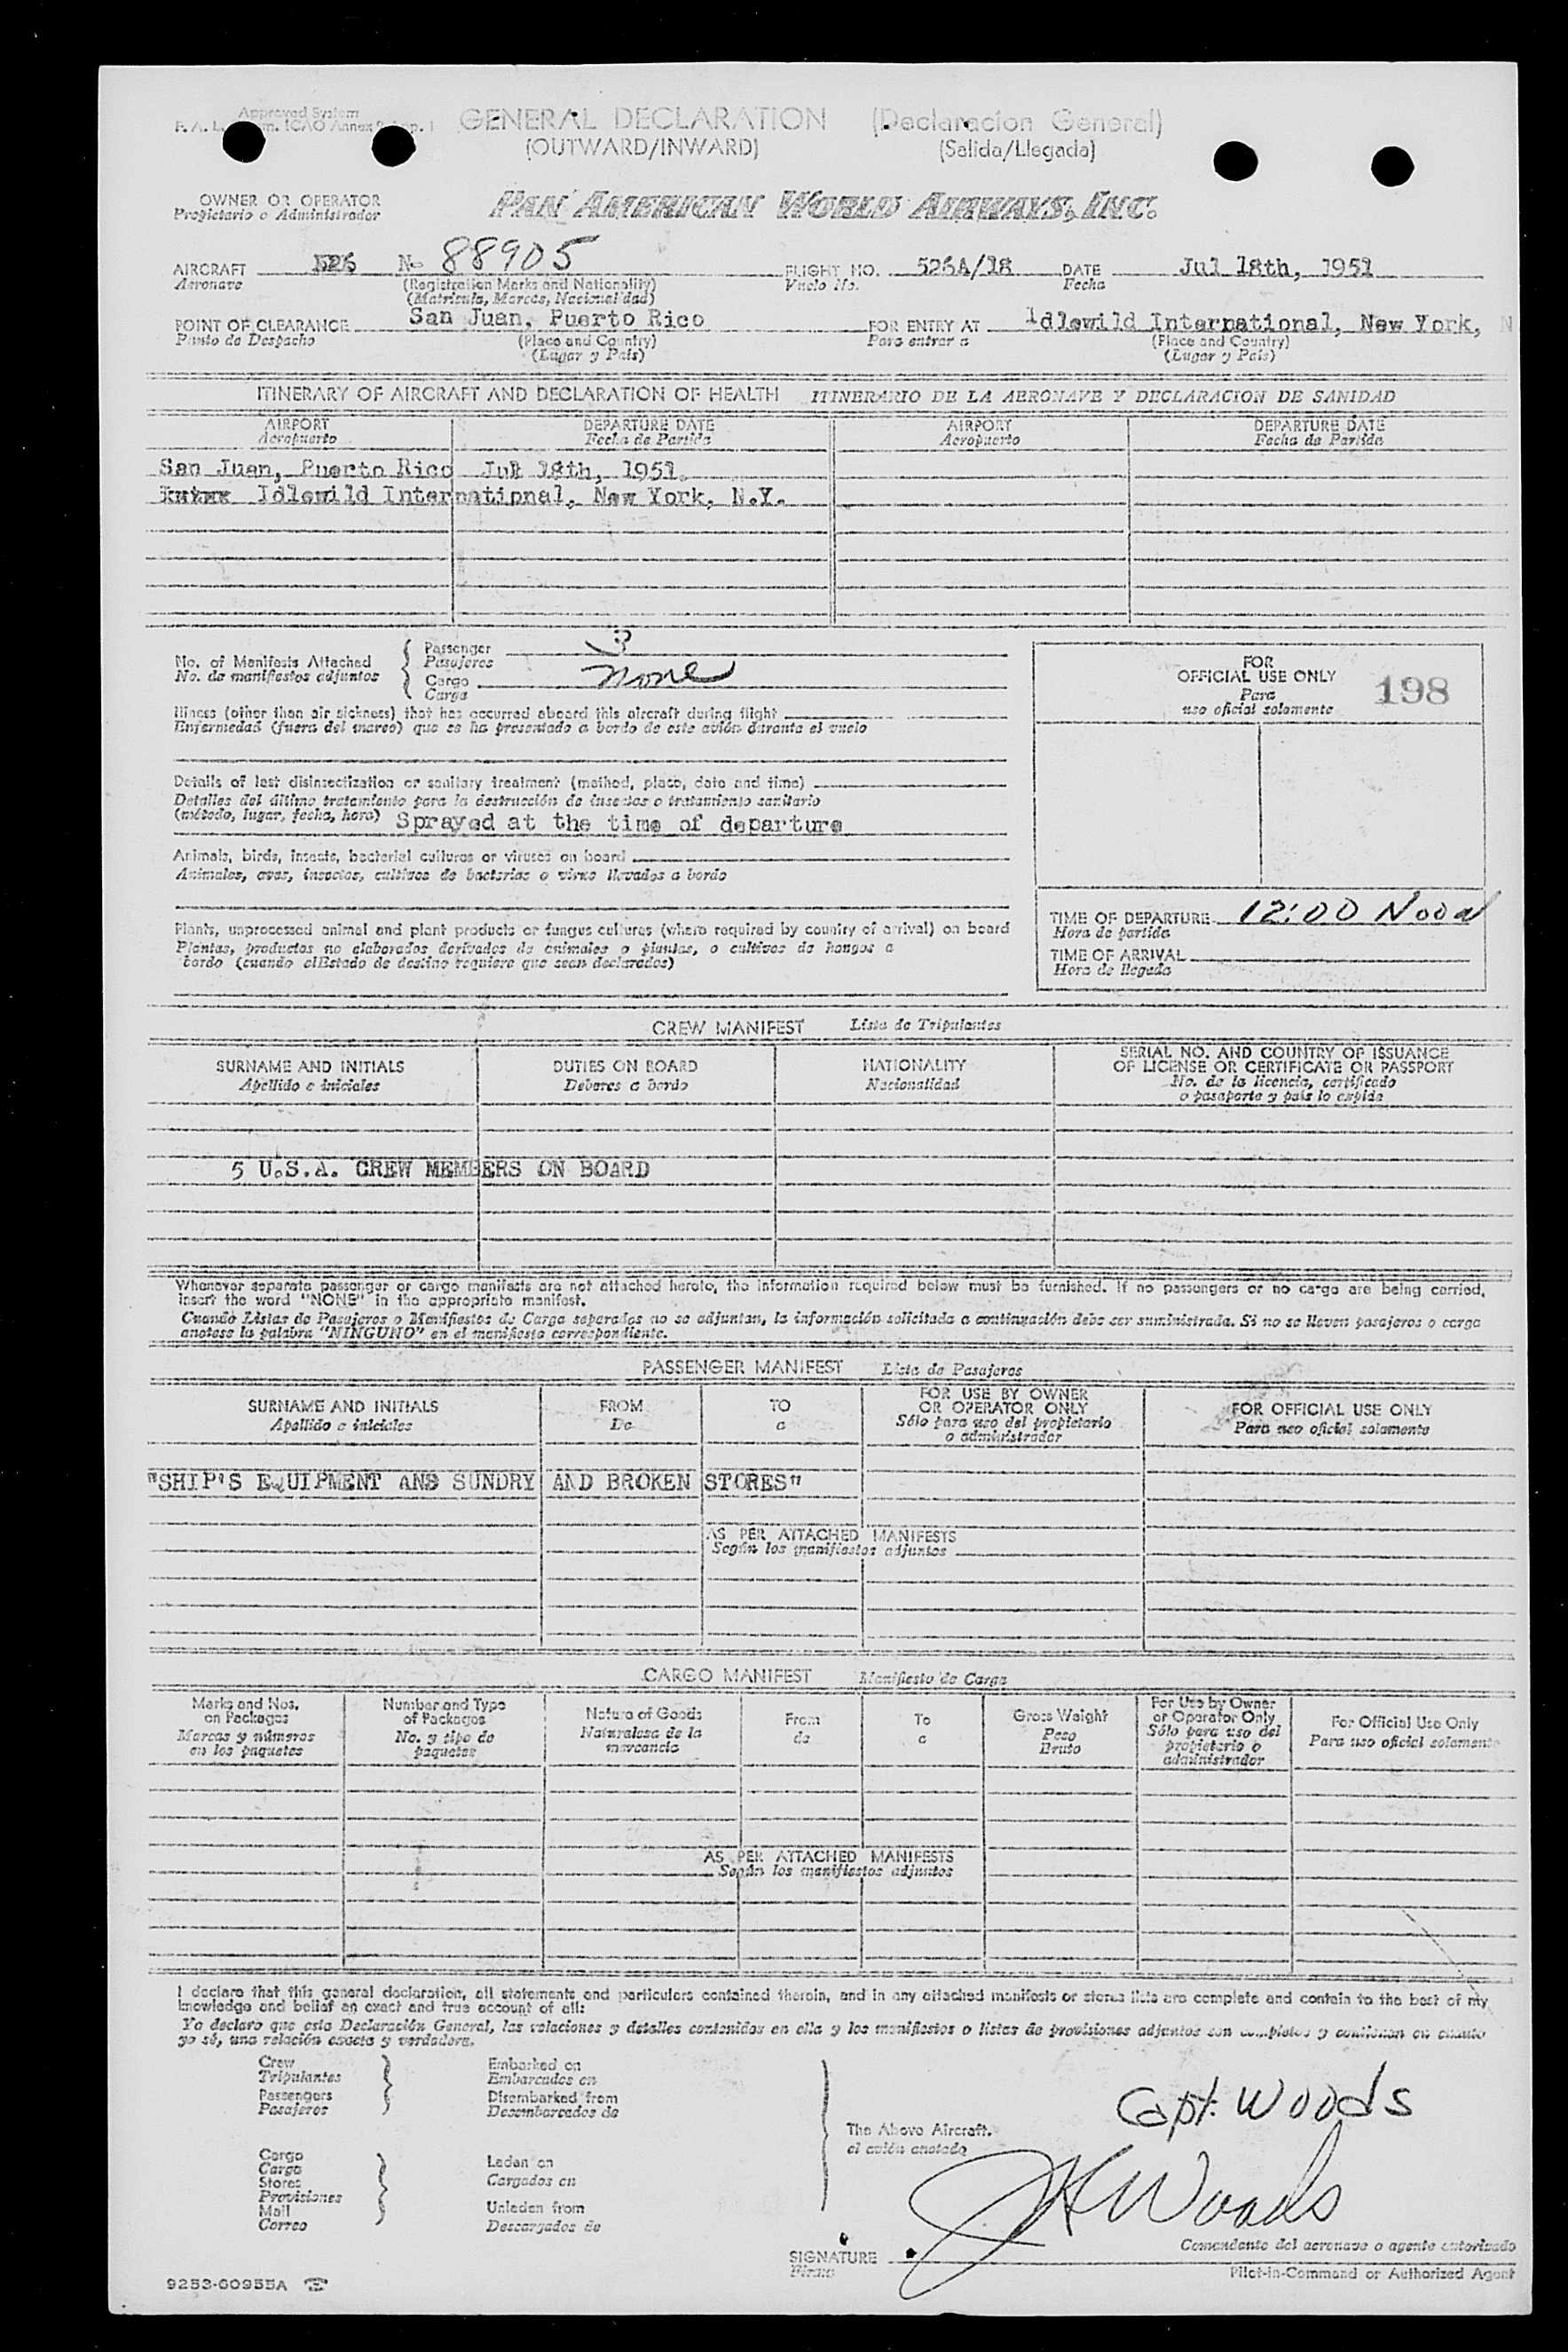 Approved System
GENERAL DECLARATION (Declaracion General)
(OUTWARD/INWARD) (Salida/Llegada)
OWNER OR OPERATOR
Propietario o Administrador
PAN AMERICAN WORLD AIRWAYS, INC.
AIRCRAFT N- 88905 FLIGHT NO. 526A/18 DATE Jul 18th, 1951
Aeronave (Registration Marks and Nationality) Vuelo No. Fecha
(Matricula, Marcas, Nacionalidad)
POINT OF CLEARANCE San Juan, Puerto Rico FOR ENTRY AT Idlewild International, New York, N
Punto de Despacho (Place and Country) Para entrar a (Place and Country)
(Lugar y Pais) (Lugar y Pais)
ITINERARY OF AIRCRAFT AND DECLARATION OF HEALTH ITINERARIO DE LA AERONAVE Y DECLARACION DE SANIDAD
AIRPORT DEPARTURE DATE AIRPORT DEPARTURE DATE
Aeropuerto Fecha de Partida Aeropuerto Fecha de Partida
San Juan, Puerto Rico Jul 18th, 1951.
Idlewild International, New York, N.Y.
No. of Manifests Attached
No. de manifiestos adjuntos
Passenger 3
Pasajeros
Cargo none
Carga
FOR
OFFICIAL USE ONLY
Para
uso oficial solamente
198
Illness (other than air sickness) that has occurred aboard this aircraft during flight
Enfermedad (fuera del mareo) que se ha presentado a bordo de este avión durante el vuelo
Details of last disinsectization or sanitary treatment (method, place, date and time)
Detalles del último tratamiento para la destrucción de insectos o tratamiento sanitario
(método, lugar, fecha, hora) Sprayed at the time of departure
Animals, birds, insects, bacterial cultures or viruses on board
Animales, aves, insectos, cultivos de bacterias o virus llevados a bordo
Plants, unprocessed animal and plant products or fungus cultures (where required by country of arrival) on board
Plantas, productos no elaborados derivados de animales o plantas, o cultivos de hongos a
bordo (cuando el Estado de destino requiere que sean declarados)
TIME OF DEPARTURE 12:00 Noon
Hora de partida
TIME OF ARRIVAL
Hora de llegada
CREW MANIFEST Lista de Tripulantes
SURNAME AND INITIALS DUTIES ON BOARD NATIONALITY SERIAL NO. AND COUNTRY OF ISSUANCE
OF LICENSE OR CERTIFICATE OR PASSPORT
Apellido e iniciales Deberes a bordo Nacionalidad No. de la licencia, certificado
o pasaporte y país lo expide
5 U.S.A. CREW MEMBERS ON BOARD
Whenever separate passenger or cargo manifests are not attached hereto, the information required below must be furnished. If no passengers or no cargo are being carried,
insert the word "NONE" in the appropriate manifest.
Cuando Listas de Pasajeros o Manifiestos de Carga separados no se adjuntan, la información solicitada a continuación debe ser suministrada. Si no se lleven pasajeros o carga
anotese la palabra "NINGUNO" en el manifiesto correspondiente.
PASSENGER MANIFEST Lista de Pasajeros
SURNAME AND INITIALS FROM TO FOR USE BY OWNER
OR OPERATOR ONLY FOR OFFICIAL USE ONLY
Apellido e iniciales De a Sólo para uso del propietario
o administrador Para uso oficial solamente
"SHIP'S EQUIPMENT AND SUNDRY AND BROKEN STORES"
AS PER ATTACHED MANIFESTS
Según los manifiestos adjuntos
CARGO MANIFEST Manifiesto de Carga
Marks and Nos.
on Packages
Marcas y números
en los paquetes
Number and Type
of Packages
No. y tipo de
paquetes
Nature of Goods
Naturalesa de la
mercancia
From
de
To
a
Gross Weight
Peso
Bruto
For Use by Owner
or Operator Only
Sólo para uso del
propietario o
administrador
For Official Use Only
Para uso oficial solamente
AS PER ATTACHED MANIFESTS
Según los manifiestos adjuntos
I declare that this general declaration, all statements and particulars contained therein, and in any attached manifests or stores lists are complete and contain to the best of my
knowledge and belief an exact and true account of all:
Yo declaro que esta Declaración General, las relaciones y detalles contenidos en ella y los manifiestos o listas de provisiones adjuntos son completos y contienen en cuanto
yo sé, una relación exacta y verdadera.
Crew Embarked on
Tripulantes Embarcados en
Passengers Disembarked from
Pasajeros Desembarcados de
Cargo
Carga
Stores
Provisiones
Mail
Correo
Laden on
Cargados en
Unladen from
Descargados de
The Above Aircraft.
el avión anotado
Capt. Woods
JH Woods
Comandante del aeronave o agente autorizado
SIGNATURE
Firma
Pilot-in-Command or Authorized Agent
9253-60955A